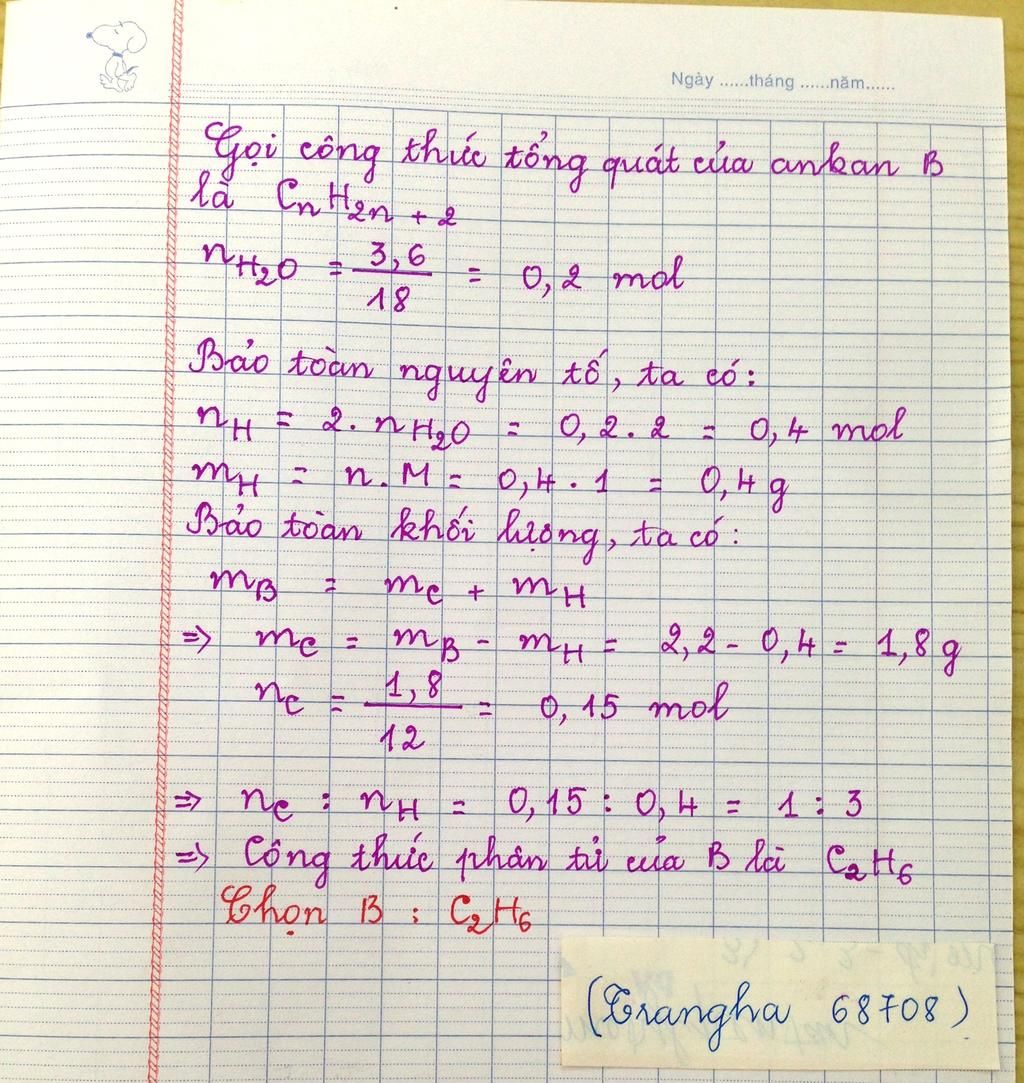 Ngày ......tháng ......năm......
Gọi công thức tổng quát của ankan B
là CnH2n + 2
nH2O = 3,6/18 = 0,2 mol
Bảo toàn nguyên tố, ta có:
nH = 2. nH2O = 0,2.2 = 0,4 mol
mH = n.M = 0,4.1 = 0,4g
Bảo toàn khối lượng, ta có:
mB = mC + mH
=> mC = mB - mH = 2,2 - 0,4 = 1,8g
nC = 1,8/12 = 0,15 mol
=> nC : nH = 0,15 : 0,4 = 1 : 3
=> Công thức phân tử của B là C2H6
Chọn B : C2H6
(Trangha 68708)